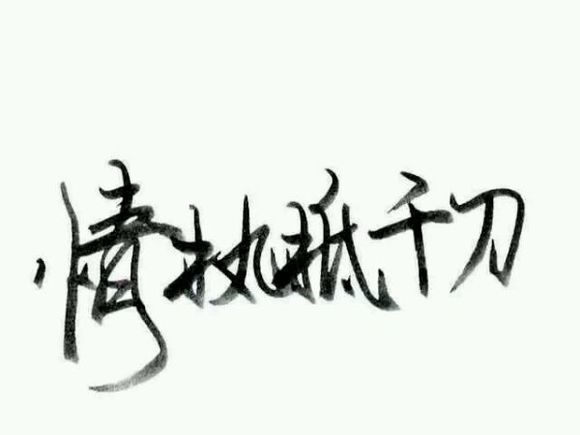 情执抵千刀